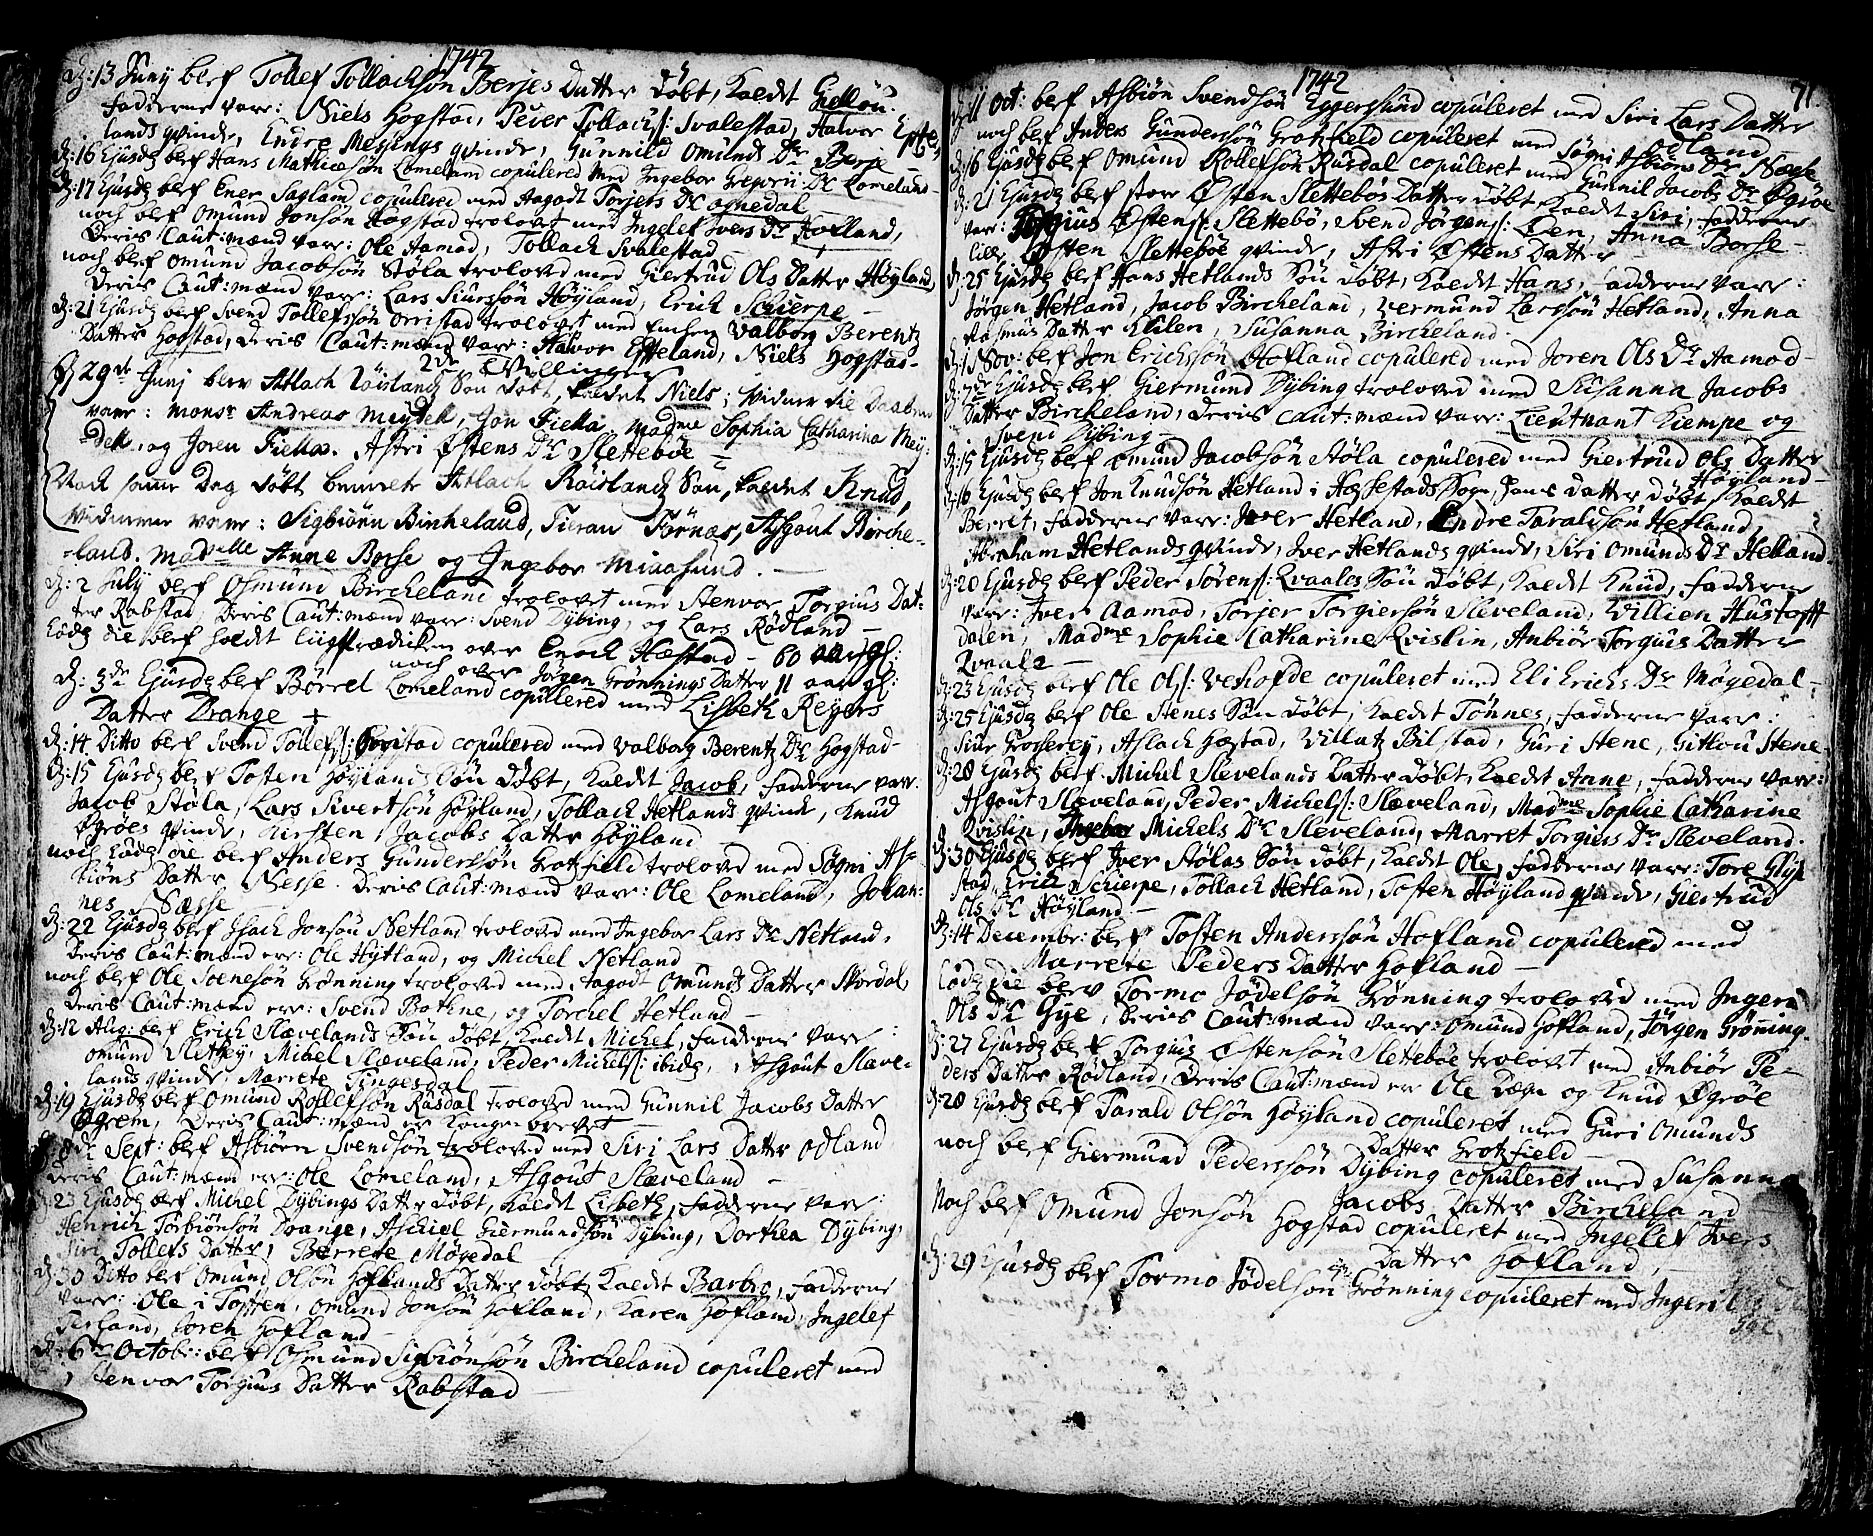 1742
d: 13 Juny blef Tollef Tollachsön Berjes Datter döbt, kaldt Giellou.
fadderne vare: Niels Hogstad, Peder Tollachs: Svalestad, Halvor Epte-
lands qvinde, Endre Meyings qvinde, Gunnild Omunds Dr Berje
d: 16 Ejusdg blef Hans Mathiasön Lomeland copulered med Ingebor Gregorii Dr Lomeland
d: 17 Ejusdg blef Ener Sagland copulered med Aagodt Torjers Dr Ognedal
noch blef Omund Jonsön Hogstad trolovet med Ingelef Ivers Dr Hofland,
Deris Caut: mænd vare: Ole Aamod, Tollach Svalestad
noch blef Omund Jacobsön Stöla troloved med Giertrud Ols Datter Höyland
Deris Caut: mænd vare: Lars Siurssön Höyland, Erich Schierpe
d: 21 Ejusdg blef Svend Tollefssön Orrestad trolovet med Enchen Valborg Berentz
Datter Hogstad, deris Caut: mænd vare: Halvor Epteland, Niels Hogstad-
2de Tvillinger
29de Junj blev Atlach Röislands Sön döbt, kaldet Niels; vidner til Daaben
vare: Monsr Andreas Meydell, Jon Fiella. Madme Sophia Catharina Mey-
dell, og Joren Fiella. Astri Østens Dr Slettebøe
Noch samme Dag döbt bemeldte Atlach Röislands Sön, kaldet Knud,
Vidnerne vare: Sigbiörn Bircheland, Tieran Törnæs, Asgout Birche-
land. Madselle Anne Borse og Ingebor Miaasund.
d: 2 July blef Osmund Bircheland trolovet med Stenvor Torgius Dat-
ter Rabstad, Deris Caut: mænd vare: Svend Dybing, og Lars Rödland
Eodg die blef holdt liigprædicken over Enoch Hæstad - 60 aar gl:
noch over Jörgen Grönnings Datter 11 aar gl:
d: 3de Ejusdg blef Börrel Lomeland copulered med Lisbeth Reyers
Datter Drange
d: 14 Ditto blef Svend Tollefs: Orrestad copulered med Valborg Berentz Dr Hogstad-
d: 15 Ejusdg blef Tosten Höylands Sön döbt, kaldt Jacob, fadderne vare:
Jacob Stöla, Lars Sivertsön Höyland, Tollach Hetlands qvinde, Knud
Øgröes qvinde, Kirsten Jacobs Datter Höyland
noch Eodg die blef Anders Gunderssön Grotzfield troloved med Sögni As-
biöns Datter Nesse. Deris Caut: mænd vare: Ole Lomeland, Johan-
nes Næsse
d: 22 Ejusdg blef Isach Jonsön Netland troloved med Ingebor Lars Dr Netland,
Deris Caut: mænd err: Ole Hytland, og Michel Netland
noch blef Ole Svensön Grönning troloved med Aagodt Omunds Datter Skordal
Deris Caut: mænd err: Svend Bothne, og Torchel Hetland
d: 12 Aug: blef Erich Slævelands Sön döbt, kaldt Michel, fadderne vare:
Omund Slethey, Mikel Slæveland, Peder Michels: ibidg, Asgout Slæve-
lands qvinde, Marrete Tingesdal
d: 19 Ejusdg blef Omund Rollefsön Rusdal troloved med Gunnil Jacobs Datter
Øgrem, Deris Caut: mænd er Kongebrevet
d: 8de Sept: blef Asbiörn Svendsön troloved med Siri Lars Datter Odland
Deris Caut: mænd err: Ole Lomeland, Asgout Slæveland
d: 23 Ejusdg blef Michel Dybings Datter döbt, kaldt Lisbeth, fadderne vare:
Henrich Torbiönsön Drange, Aschiel Giermundsön Dybing, Dorthea Dybing,
Siri Tollefs Datter, Berrete Möyedal
d: 30 Ditto blef Omund Olsön Hoflands Datter döbt kaldt Barbro, fadderne
vare: Ole i Tosten, Omund Jonsön Hofland, Karen Hofland, Ingelef
Hofland, Soren Hofland
d: 6te Octobr: blef Osmund Sigbiönsön Bircheland copuleret med
Stenvor Torgius Datter Rabstad
1742
71
d: 11 Oct: blef Asbiön Svendsön Eggersund copuleret med Siri Lars Datter
Odland
noch blef Anders Gunderssön Grotzfield copuleret med Sögni Asbiöns Dr Næsse
d: 16 Ejusdg blef Omund Rollefsön Rusdal copuleret med Gunnil Jacobs Dr Øgröe
d: 21 Ejusdg blef store Østen Slettebös Datter döbt kaldt Siri, fadderne
vare: Torgius Østens: Slettebö, Svend Jörgens: Eien, Anna Borse-
lille Østen Sletteböe qvinde, Astri Østens Datter
d: 25 Ejusdg blef Hans Hetlands Sön döbt, kaldt Hans, fadderne vare:
Jörgen Hetland, Jacob Bircheland, Vermund Larssön Hetland, Anna
Rasmus Datter Eilen, Susanna Bircheland.
d: 1 Nov: blef Jon Erichssön Hofland copulered med Joren Ols Dr Aamod-
d: 7de Ejusdg blef Giermund Dybing troloved med Susanna Jacobs
Datter Bircheland, deris Caut: mænd vare: Lieutnant Kiempe og
Svend Dybing
d: 15 Ejusdg blef Omund Jacobsön Stöla copulered med Giertrud Ols Datter
Höyland-
d: 16 Ejusdg blef Jon Knudsön Hetland i Hæstestads Sogn, hans datter döbt kaldt
Berret, fadderne vare: Iver Hetland, Endre Taraldsön Hetland,
Abraham Hetlands qvinde, Iver Hetlands qvinde, Siri Omunds Dr Hetland.
d: 20 Ejusdg blef Peder Sörens: Qvaales Sön döbt, kaldt Knud, fadderne
vare: Iver Aamod, Torjer Torgiersön Sleveland, Villien Hustofft
dalen, Madme Sophie Catharine Qvislin, Anbiör Torgius Datter
Qvaale
d: 23 Ejusdg blef Ole Ols: Veshofde copuleret med Eli Erichs Dr Möyedal,
d: 25 Ejusdg blef Ole Stenes Sön döbt, kaldt Tönnes, fadderne vare:
Siur Grosserey, Aslach Hæstad, Villatz Bilstad, Guri Stene, Gitlou Stene.
d: 28 Ejusdg blef Michel Slevelands Datter döbt, kaldt Anne, fadderne vare:
Asgout Slæveland, Peder Michels: Slæveland, Madme Sophie Catharine
Qvislin, Ingebor Michels Dr Sleveland, Marret Torgiers Dr Sleveland.
d: 30 Ejusdg blef Iver Stölas Sön döbt, kaldt Ole, fadderne vare: Tore Glyp-
stad, Erich Schierpe, Tollach Hetland, Tosten Höyland qvinde, Giertrud
Ols Dr Höyland
d: 14 Decembr: blef Tosten Anderssön Hofland copulered med
Marrete Peders Datter Hofland
Eodg die blev Tormo Jödelsön Grönning troloved med Ingeri
Ols Dr Gye, Deris Caut: mænd vare: Omund Hofland, Jörgen Grönning.
d: 27 Ejusdg blef Torgius Østensön Sletteböe trolovet med Anbiör Pe-
ders Datter Rödland, Deris Caut: mænd er Ole Dægn og Knud Øgröe
d: 28 Ejusdg blef Tarald Olsön Höyland copuleret med Guri Omunds
Datter Grotzfield
noch blef Giermund Pederssön Dybing copuleret med Susanna
Jacobs Datter Bircheland
Noch blef Omund Jonsön Hogstad copuleret med Ingelef Ivers
Datter Hofland,
d: 29 Ejusdg blef Tormo Jödelsön Grönning copuleret med Ingeri Ols Dr
Gye